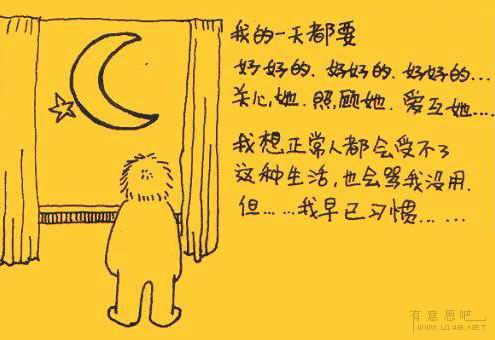 我的一天都要
好好的、好好的、好好的...
关心她、照顾她、爱互她....
我想正常人都会受不了
这种生活,也会骂我没用.
但......我早已习惯......
有意思吧
WWW.U148.NET